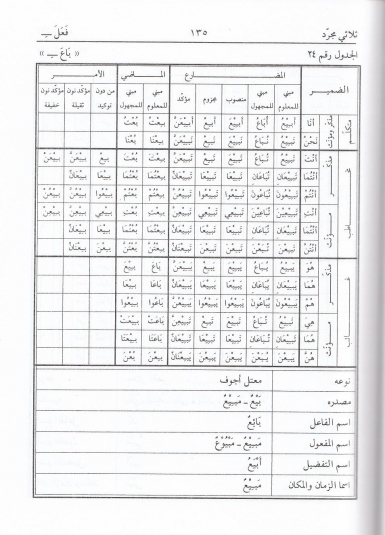 ثلاثي مجرّد ١٣٥ فَعَلَ ـِ
الجدول رقم ٢٤ « بَاعَ ـِ »
الضميـر المضـارع المـاضي الأمـر
مبني للمعلوم مبني للمجهول منصوب مجزوم مؤكّد مبني للمعلوم مبني للمجهول من دون توكيد مؤكّد نون ثقيلة مؤكّد نون خفيفة
أَنَا أَبِيعُ أُبَاعُ أَبِيعَ أَبِعْ أَبِيعَنَّ بِعْتُ
نَحْنُ نَبِيعُ نُبَاعُ نَبِيعَ نَبِعْ نَبِيعَنَّ بِعْنَا
أَنْتَ تَبِيعُ تُبَاعُ تَبِيعَ تَبِعْ تَبِيعَنَّ بِعْتَ بِعْ بِيعَنَّ بِيعَنْ
أَنْتُمَا تَبِيعَانِ تُبَاعَانِ تَبِيعَا تَبِيعَا تَبِيعَانِّ بِعْتُمَا بِيعَا بِيعَانِّ
أَنْتُمْ تَبِيعُونَ تُبَاعُونَ تَبِيعُوا تَبِيعُوا تَبِيعُنَّ بِعْتُمْ بِيعُوا بِيعُنَّ بِيعُنْ
أَنْتِ تَبِيعِينَ تُبَاعِينَ تَبِيعِي تَبِيعِي تَبِيعِنَّ بِعْتِ بِيعِي بِيعِنَّ بِيعِنْ
أَنْتُمَا تَبِيعَانِ تُبَاعَانِ تَبِيعَا تَبِيعَا تَبِيعَانِّ بِعْتُمَا بِيعَا بِيعَانِّ
أَنْتُنَّ تَبِعْنَ تُبَعْنَ تَبِعْنَ تَبِعْنَ بِعْتُنَّ بِعْنَ
هُوَ يَبِيعُ يُبَاعُ يَبِيعَ يَبِعْ يَبِيعَنَّ بَاعَ بِيعَ
هُمَا يَبِيعَانِ يُبَاعَانِ يَبِيعَا يَبِيعَا يَبِيعَانِّ بَاعَا بِيعَا
هُمْ يَبِيعُونَ يُبَاعُونَ يَبِيعُوا يَبِيعُوا يَبِيعُنَّ بَاعُوا بِيعُوا
هِيَ تَبِيعُ تُبَاعُ تَبِيعَ تَبِعْ تَبِيعَنَّ بَاعَتْ بِيعَتْ
هُمَا تَبِيعَانِ تُبَاعَانِ تَبِيعَا تَبِيعَا تَبِيعَانِّ بَاعَتَا بِيعَتَا
هُنَّ يَبِعْنَ يُبَعْنَ يَبِعْنَ يَبِعْنَ بِعْنَ
نوعه معتل أجوف
مصدره بَيْعٌ ـ مَبِيعٌ
اسم الفاعل بَائِعٌ
اسم المفعول مَبِيعٌ ـ مَبْيُوعٌ
اسم التفضيل أَبْيَعُ
اسما الزمان والمكان مَبِيعٌ